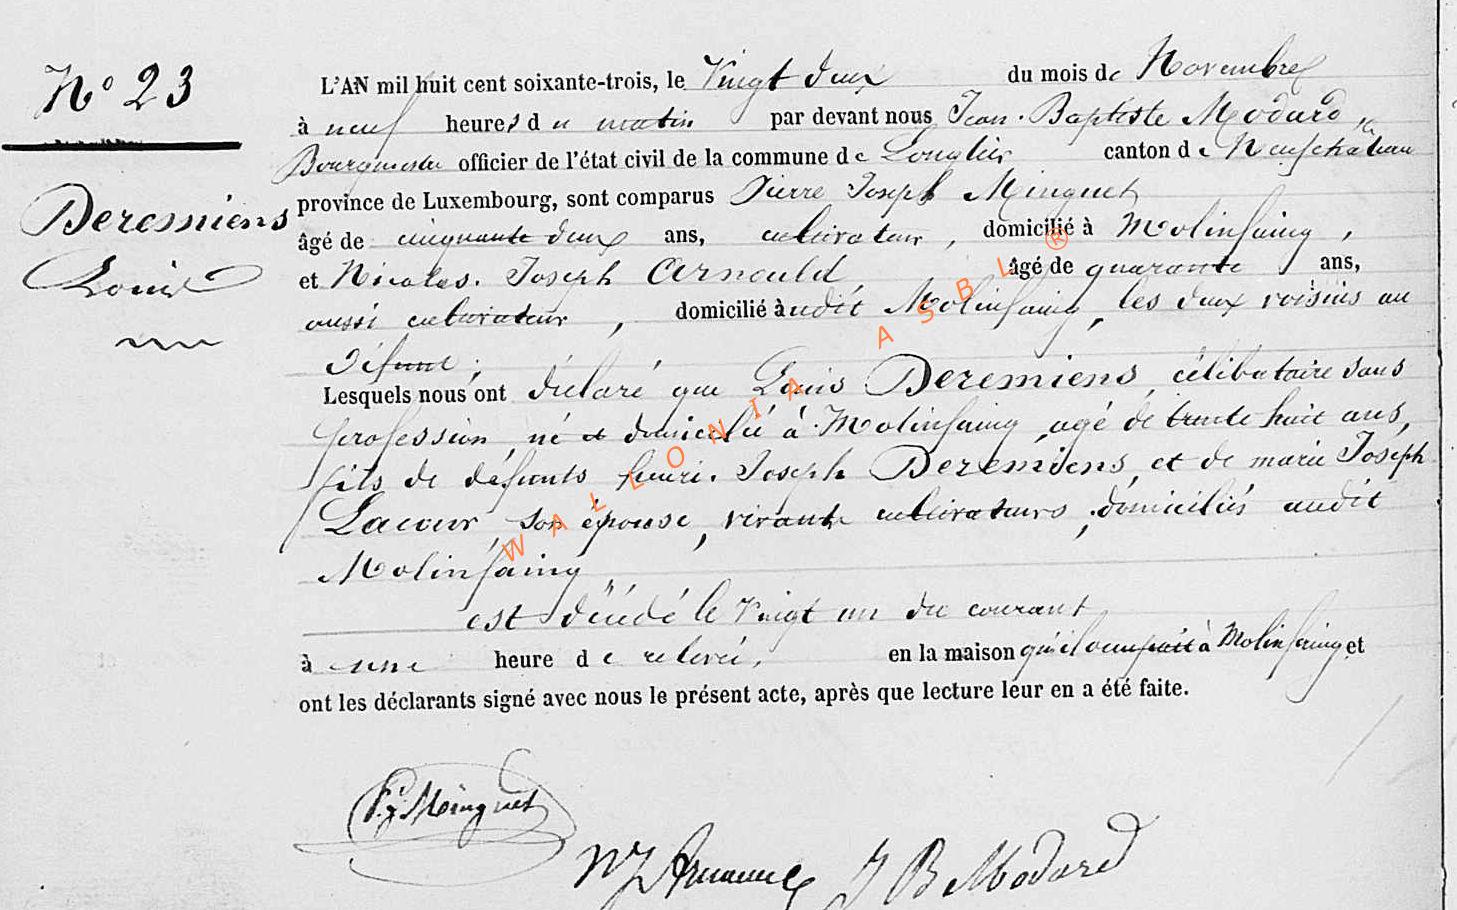 N° 23
Deremiens
Louis
L'AN mil huit cent soixante-trois, le Vingt deux du mois de Novembre
à neuf heures du matin par devant nous Jean-Baptiste Modard,
Bourgmestre officier de l'état civil de la commune de Longlier canton de Neufchateau
province de Luxembourg, sont comparus Pierre Joseph Minguet
âgé de cinquante deux ans, cultivateur, domicilié à Molinfaing,
et Nicolas-Joseph Arnould âgé de quarante ans,
aussi cultivateur, domicilié àudit Molinfaing, les deux voisins au
défunt;
Lesquels nous ont déclaré que Louis Deremiens, célibataire sans
profession, né et domicilié à Molinfaing, agé de trente huit ans,
fils de défunts henri-Joseph Deremiens, et de marie Joseph
Lacour, son épouse, vivants cultivateurs, domiciliés audit
Molinfaing,
est décédé le vingt un du courant
à une heure de relevée, en la maison qu'il occupait à Molinfaing et
ont les déclarants signé avec nous le présent acte, après que lecture leur en a été faite.
P.J. Minguet
NJ Arnould J B Modard
WALLONIA ASBL ®